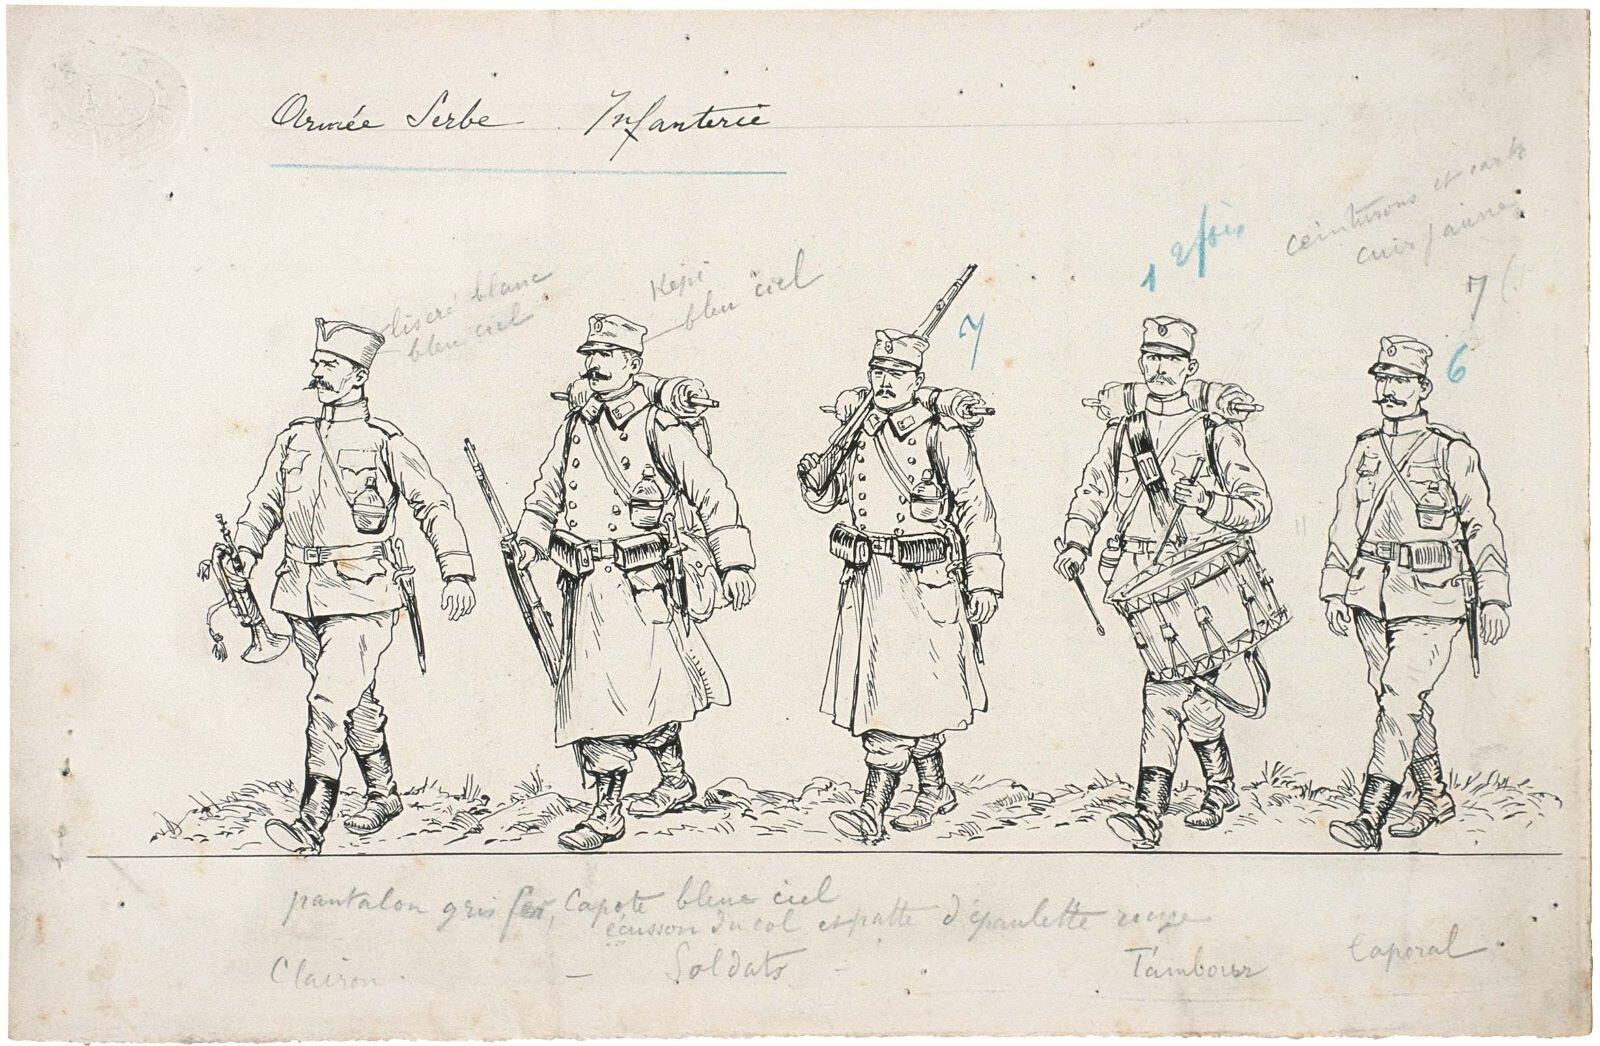 Armée Serbe Infanterie
liseré blanc
bleu ciel
Képi
bleu ciel
7
1 2 fois
ceinturons et cart
cuir jaune
7
6
pantalon gris fer, Capote bleue ciel
écusson du col et patte d'épaulette rouge
Clairon - Soldats - Tambour Caporal